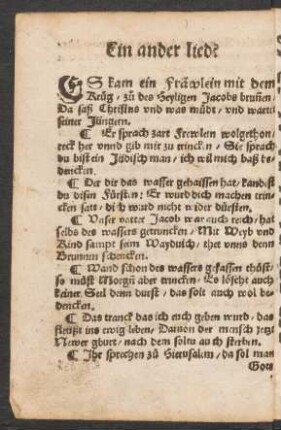 Ein ander lied?
ES kam ein Fräwlein mit dem
Krůg / zů des Heyligen Jacobs bruñen /
Da saß Christus vnd was můdt / vnd wartt
seiner Jüngern.
¶ Er sprach zart Frewlein wolgethon /
reck her vnnd gib mir zu trincken / Sie sprach
du bist ein Jüdisch man / ich wil mich baß be-
dencken.
¶ Der dir das wasser gehaissen hat / kandist
du disen Fürsten: Er wurd dich machen trin-
cken satt / dich wurd nicht wider dürsten.
¶ Vnser vatter Jacob war auch reich / hat
selbs des wassers getruncken / Mit Weyb vnd
Kind sampt seim Waydvich / thet vnns denn
Brunnen schencken.
¶ Wand schon des wassers gelassen thüst /
so můst Morgñ aber trincken / Es löscht auch
keiner Seel denn durst / das solt auch wol be-
dencken.
¶ Das tranck das ich euch geben wurd / das
fleüßt ins ewig leben / Daruon der mensch jetzt
Newer gburt / nach dem soltu auch sterben.
¶ Ihr sprechen zů Hierusalem / da sol man
Gott